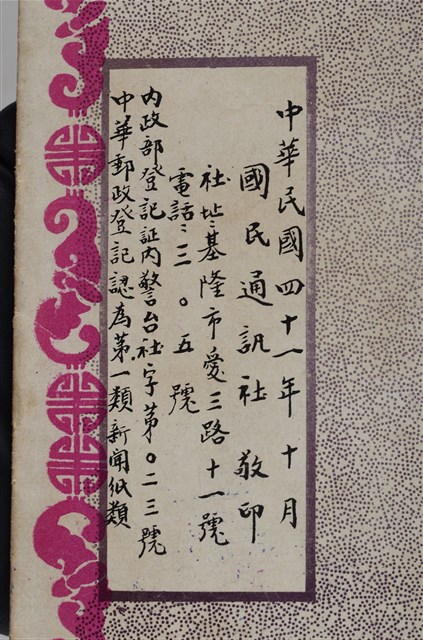 中華民國四十一年十月
國民通訊社 敬印
社址:基隆市愛三路十一號
電話:三〇五號
內政部登記証內警台社字第〇二三號
中華郵政登記認為第一類新聞紙類